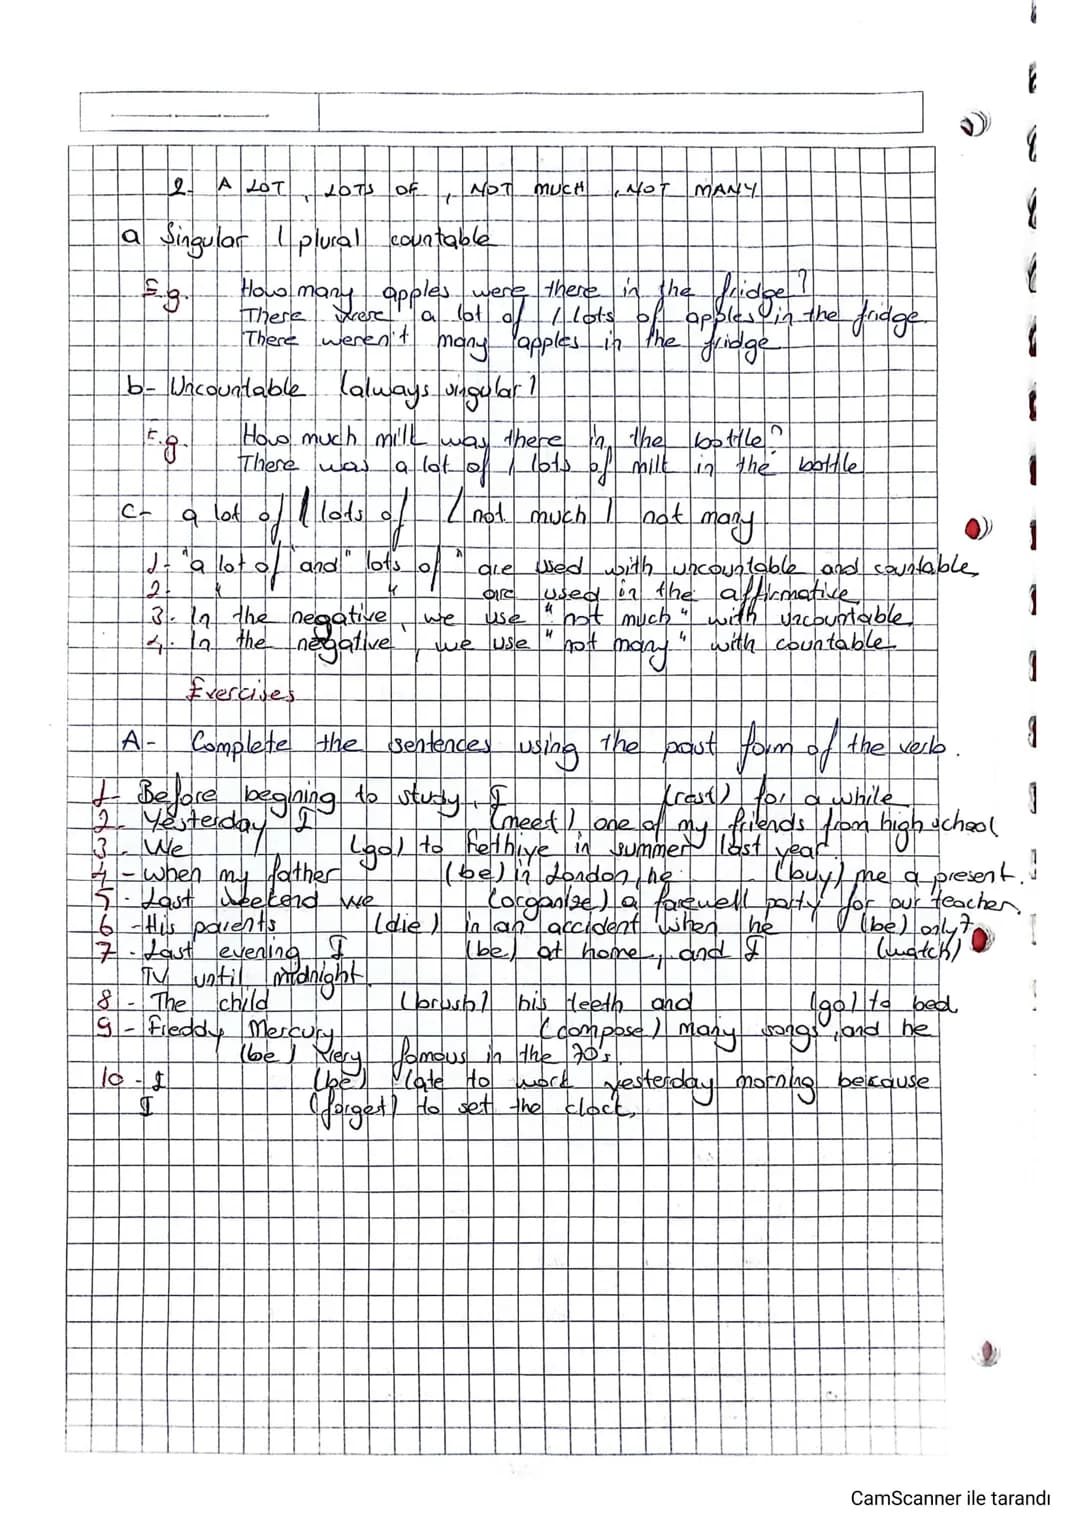 2- A LOT, LOTS OF, NOT MUCH, NOT MANY
a Singular / plural countable
E.g. How many apples were there in the fridge?
There were a lot of / lots of apples in the fridge.
There weren't many apples in the fridge
b- Uncountable (always singular)
E.g. How much milk was there in the bottle?
There was a lot of / lots of milk in the bottle
c- a lot of / lots of / not much / not many
1- "a lot of" and "lots of" are used with uncountable and countable.
2- " " are used in the affirmative.
3- In the negative, we use "not much" with uncountable.
4- In the negative, we use "not many" with countable.
Exercises
A- Complete the sentences using the past form of the verb.
1- Before begining to study, I (rest) for a while
2- Yesterday I (meet) one of my friends from high school
3- We (go) to Fethiye in summer last year.
4- When my father (be) in London, he (buy) me a present.
5- Last weekend we (organize) a farewell party for our teacher.
6- His parents (die) in an accident when he (be) only 7
7- Last evening I (be) at home, and I (watch)
TV until midnight.
8- The child (brush) his teeth and (go) to bed
9- Freddy Mercury (compose) many songs, and he
(be) very famous in the 70's.
10- I (be) late to work yesterday morning because
I (forget) to set the clock.
CamScanner ile tarandı